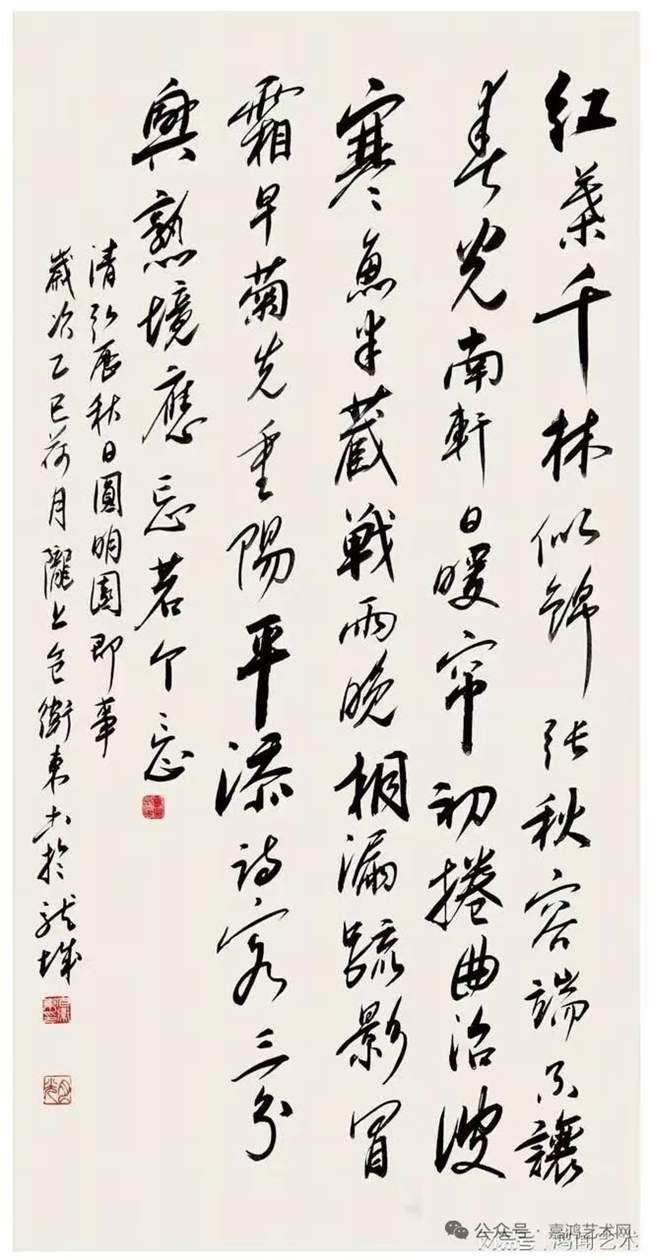 红葉千林似錦张秋容端不讓
春光南軒日暖帘初捲曲沼波
寒魚半藏戰雨晚桐漏疏影冒
霜早菊先重陽平添詩客三分
興熟境應忘若个忘
清弘历秋日圓明園即事
歲次乙巳荷月隴上包衛東书於龙城
公众号 · 嘉鸿艺术网